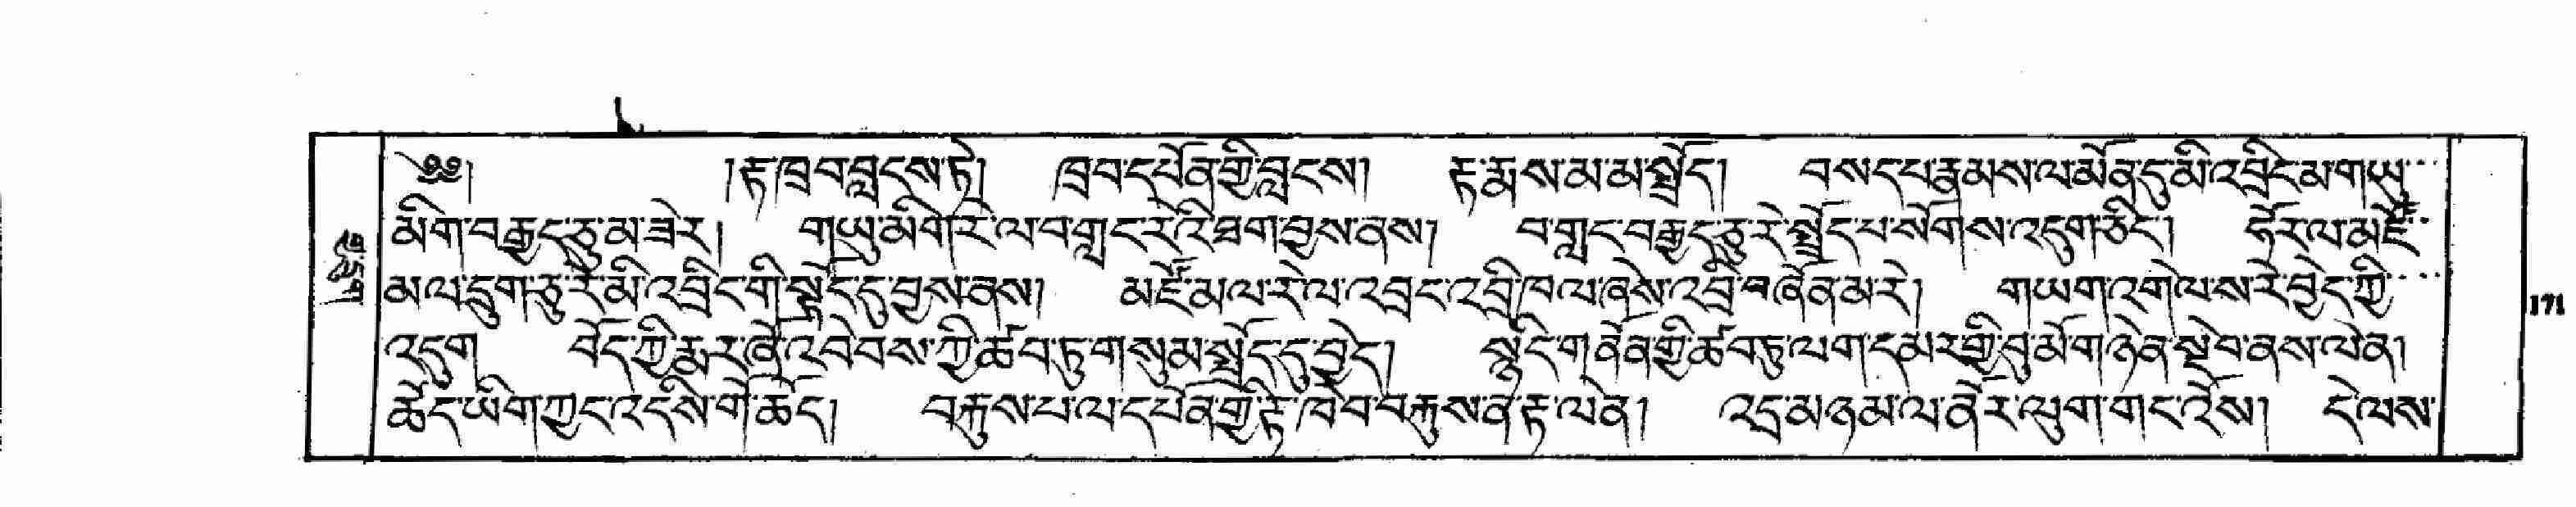 ༄༅། །རྟ་ཁྲབ་བླངས་ཏེ། ཁྲབ་དཔོན་གྱི་བླངས། རྟ་རྨས་མ་མ་སྤྲོད། བསད་པ་རྣམས་ལ་མོན་དུ་མི་འབྲིང་མ་གཡུ་
མིག་བརྒྱད་ཅུ་མ་ཟེར། གཡུ་མིག་རེ་ལ་བ་གླང་རེའི་ཐག་བྱས་ནས། བ་གླང་བརྒྱད་ཅུ་རེ་སྤྲོད་པ་སོགས་འདུག་ཅིང་། ཧོར་ལ་མཛོ་
མ་ལ་དྲུག་ཅུ་རེ་མི་འབྲིང་གི་སྟོང་དུ་བྱས་ནས། མཛོ་མ་ལ་རེ་ལ་འབྲང་འབྲི་ཁལ་ཞསེ་འབྲི་བ་ཞོན་མ་རེ། གཡག་འགལ་ས་རེ་བྱེད་ཀྱི་
འདུག བོད་ཀྱི་རྨར་ཞོ་འབེབས་ཀྱི་ཚབ་ཏུ་གསུམ་སྤྲོད་དུ་བྱེད། སྙིང་གནོན་གྱི་ཚབ་ཏུ་ལག་དམར་གྱི་བུ་མོ་གཉེན་སྡེབ་ནས་ལེན།
ཆོད་ཡིག་ཀྱང་འདསི་གོ་ཆོད། བརྐུས་པ་ལ་དཔོན་གྱི་རྟེ་ཁེབ་བརྐུས་ན་རྟ་ལེན། འདྲ་མཉམ་ལ་ནོར་ལུག་གང་འོས། དེ་ལས་
171